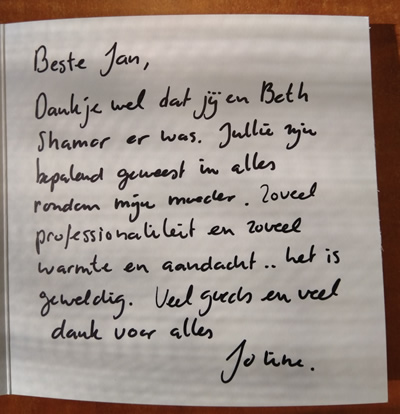 Beste Jan,
Dankje wel dat jij en Beth
Shamar er was. Jullie zijn
bepalend geweest in alles
rondom mijn moeder. Zoveel
professionaliteit en zoveel
warmte en aandacht.. het is
geweldig. Veel goeds en veel
dank voor alles